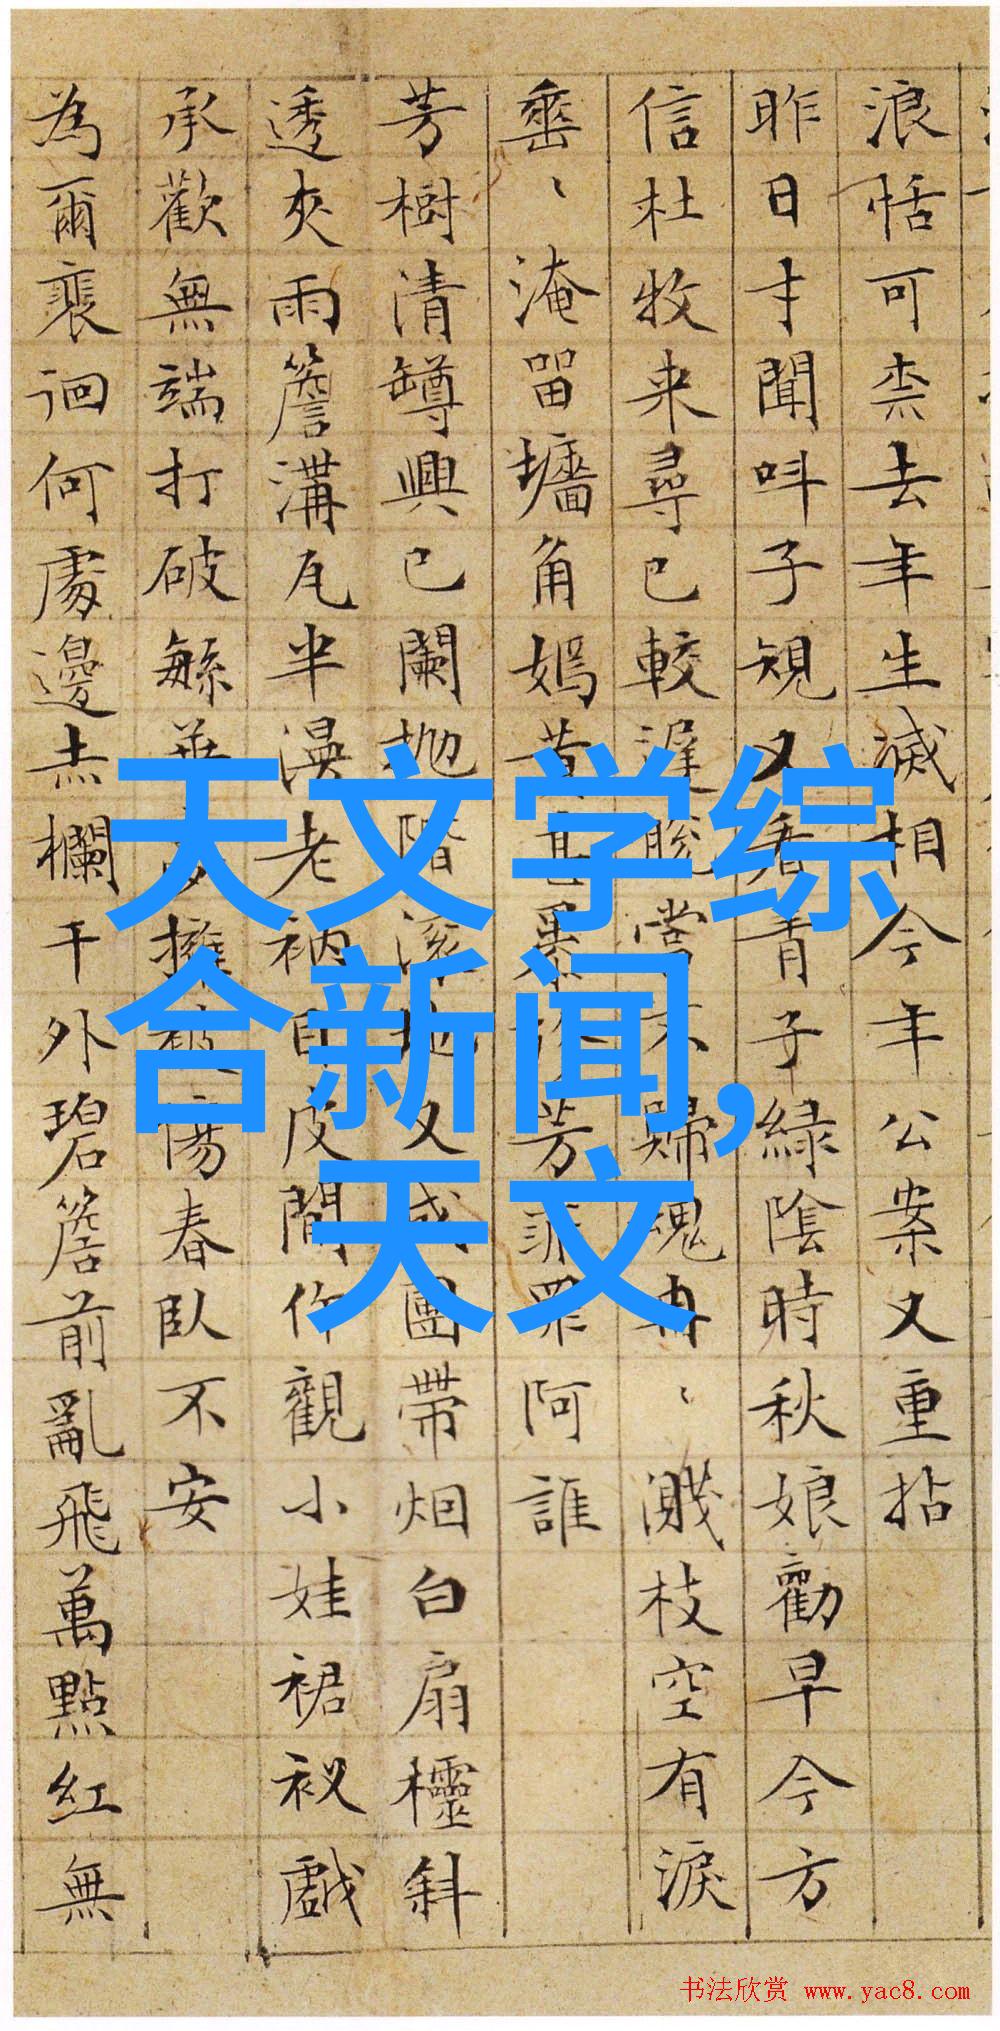 浪恬可柰去年生滅相今年公案又重拈
昨日才聞叫子規又看青子緑陰時秋娘勸早今方
信杜牧来尋已較遲當不歸魂冉、濺枝空有淚
垂、淹畱墻角嫣昔芳菲罪阿誰
芳樹清罇興已闌拋階滾地又成團帶烟白扇欞斜
透夾雨簷溝瓦半漫老衲皮閒作觀小娃裙衩戲
承歡無端打破緐華擁被傷春臥不安
為爾裵徊何處邊赤欄干外碧簷前亂飛萬點紅無
天文学综
合新闻,
天文
书法欣赏 www.yac8.com